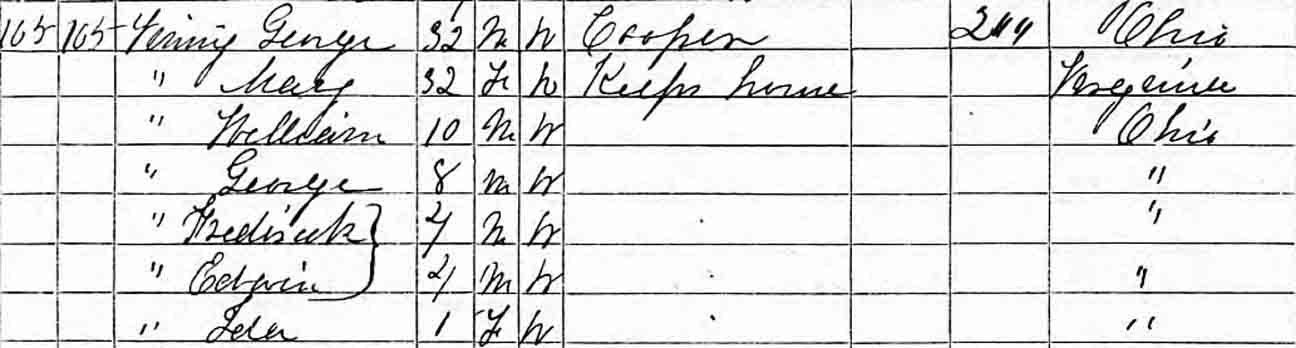 165 165 George 32 M W Cooper 200 Ohio
" Mary 32 F W Keeps home Virginia
" William 10 M W Ohio
" George 8 M W "
" Frederick 4 M W "
" Edwin 4 M W "
" Ida 1 F W "